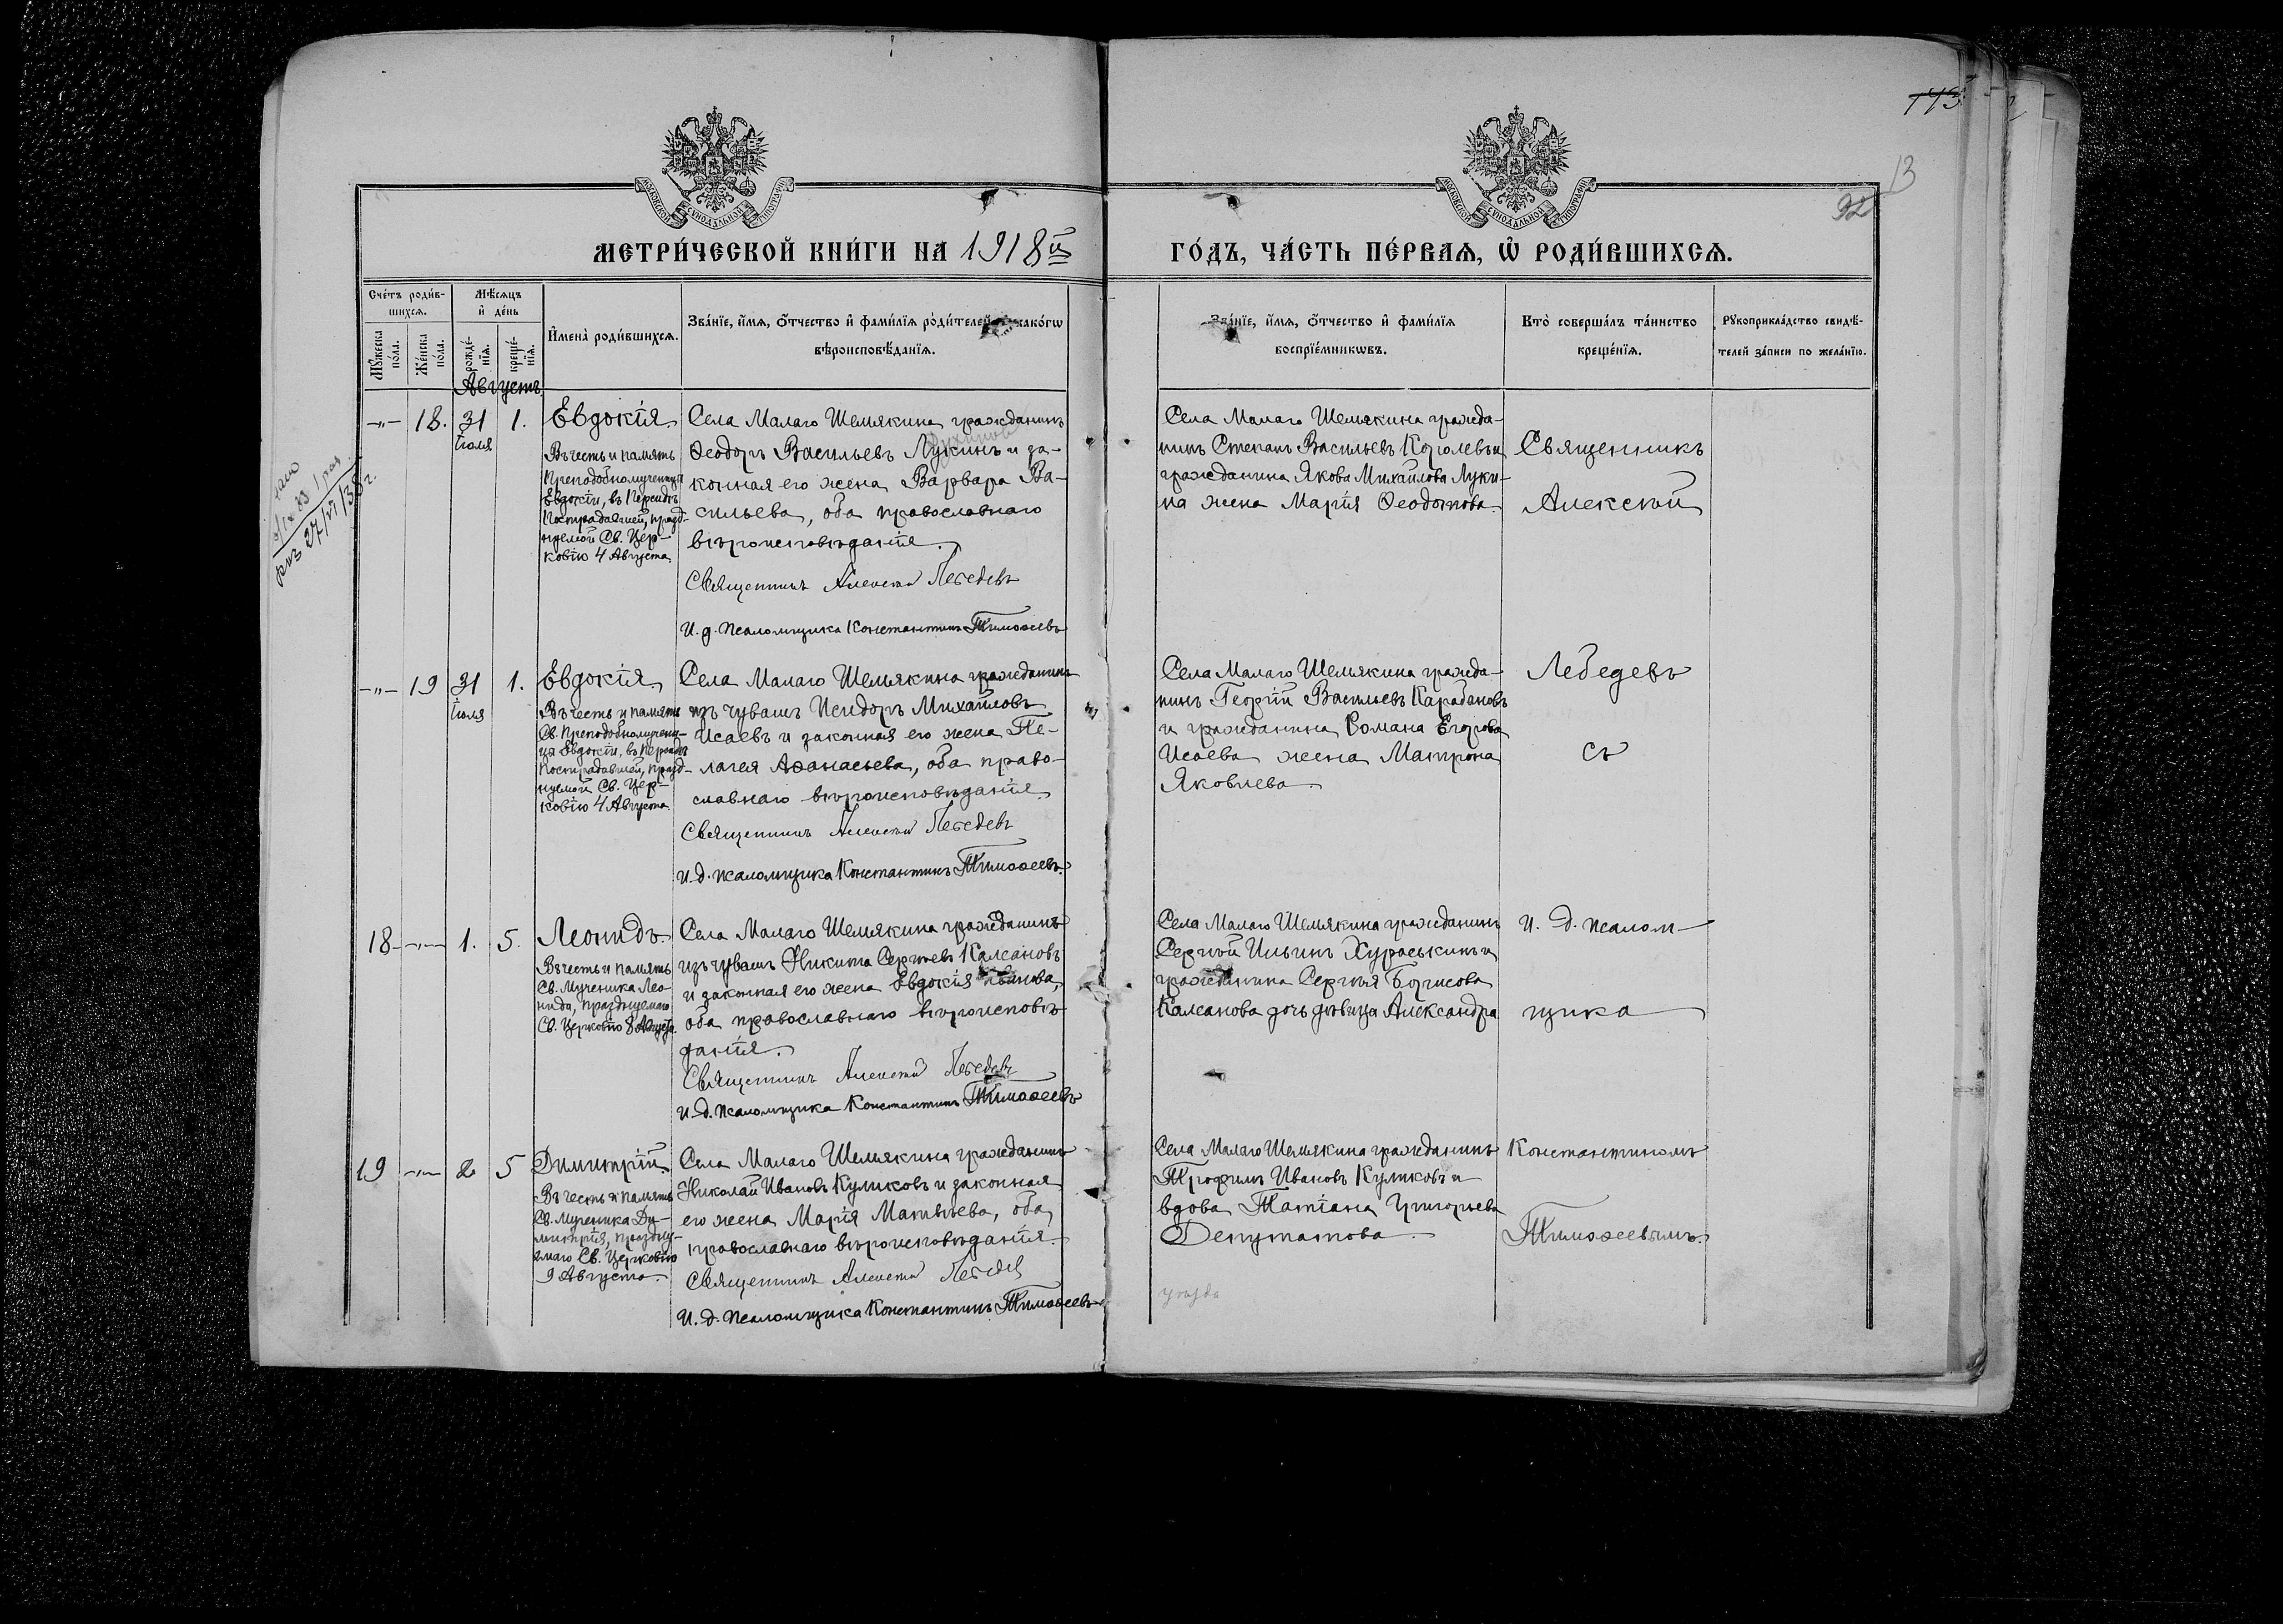 143
13
92
МОСКОВСКОЙ СУНОДАЛЬНОЙ ТИПОГРАФІИ
МОСКОВСКОЙ СУНОДАЛЬНОЙ ТИПОГРАФІИ
МЕТРИ́ЧЕСКОЙ КНИ́ГИ НА 1918й
ГО́ДЪ, ЧА́СТЬ ПЕ́РВАЯ, Ѡ҆ РОДИ́ВШИХСЯ.
Сче́тъ роди́в-
шихся.
Мꙋ́жеска
по́ла.
Же́нска
по́ла.
Мѣ́сяцъ
и҆ де́нь
рожде́-
нїя.
креще́-
нїя.
И҆мена̀ роди́вшихся.
Зва́нїе, и҆́мя, ѻ҆́тчество и҆ фами́лїя роди́телей како́гѡ
вѣроисповѣ́данїя.
Зва́нїе, и҆́мя, ѻ҆́тчество и҆ фами́лїя
воспрїе́мникѡвъ.
Кто̀ соверша́лъ та́инство
креще́нїя.
Рꙋкоприкла́дство свидѣ́-
телей за́писи по жела́нїю.
Августъ
-"- 18. 31 1. Евдокія
Іюля
Въ честь и память
Преподобномученицы
Евдокіи, въ Персидѣ
Пострадавшей, празд-
нуемой Св. Цер-
ковію 4 Августа.
Села Малаго Шемякина гражданинъ
Ѳеодоръ Васильевъ Лукинъ и за-
конная его жена Варвара Ва-
сильева, оба православнаго
вѣроисповѣданія.
Священникъ Алексій Лебедевъ
И. д. псаломщика Константинъ Тимоѳеевъ
Села Малаго Шемякина гражда-
нинъ Степанъ Васильевъ Королевъ и
гражданина Якова Михайлова Луки-
на жена Марія Ѳеодотова.
Священникъ
Алексій
27/VI/38 г.
-"- 19 31 1. Евдокія.
Іюля
Въ честь и память
Св. Преподобномучени-
цы Евдокіи, въ Персидѣ
Пострадавшей, празд-
нуемой Св. Цер-
ковію 4 Августа.
Села Малаго Шемякина гражданинъ
изъ чувашъ Исидоръ Михайловъ
Исаевъ и законная его жена Пе-
лагея Аѳанасьева, оба право-
славнаго вѣроисповѣданія.
Священникъ Алексій Лебедевъ
И. д. псаломщика Константинъ Тимоѳеевъ.
Села Малаго Шемякина гражда-
нинъ Георгій Васильевъ Карабановъ
и гражданина Романа Егорова
Исаева жена Матрона
Яковлева.
Лебедевъ
съ
18 -"- 1. 5. Леонидъ.
Въ честь и память
Св. Мученика Лео-
нида, празднуемаго
Св. Церковію 8 Августа.
Села Малаго Шемякина гражданинъ
изъ чувашъ Никита Сергѣевъ Калсановъ
и законная его жена Евдокія Иванова,
оба православнаго вѣроисповѣ-
данія.
Священникъ Алексій Лебедевъ
И. д. псаломщика Константинъ Тимоѳеевъ
Села Малаго Шемякина гражданинъ
Сергѣй Ильинъ Хураськинъ и
гражданина Сергѣя Борисова
Калсанова дочь дѣвица Александра
И. д. псалом-
щика
19 -"- 2 5 Димитрій.
Въ честь и память
Св. Мученика Ди-
митрія, праздну-
емаго Св. Церковію
9 Августа.
Села Малаго Шемякина гражданинъ
Николай Ивановъ Куликовъ и законная
его жена Марія Матвѣева, оба
православнаго вѣроисповѣданія.
Священникъ Алексій Лебедев
И. д. псаломщика Константинъ Тимоѳеевъ
Села Малаго Шемякина гражданинъ
Трофимъ Ивановъ Куликовъ и
вдова Татіана Григорьева
Депутатова.
Константиномъ
Тимоѳеевымъ.